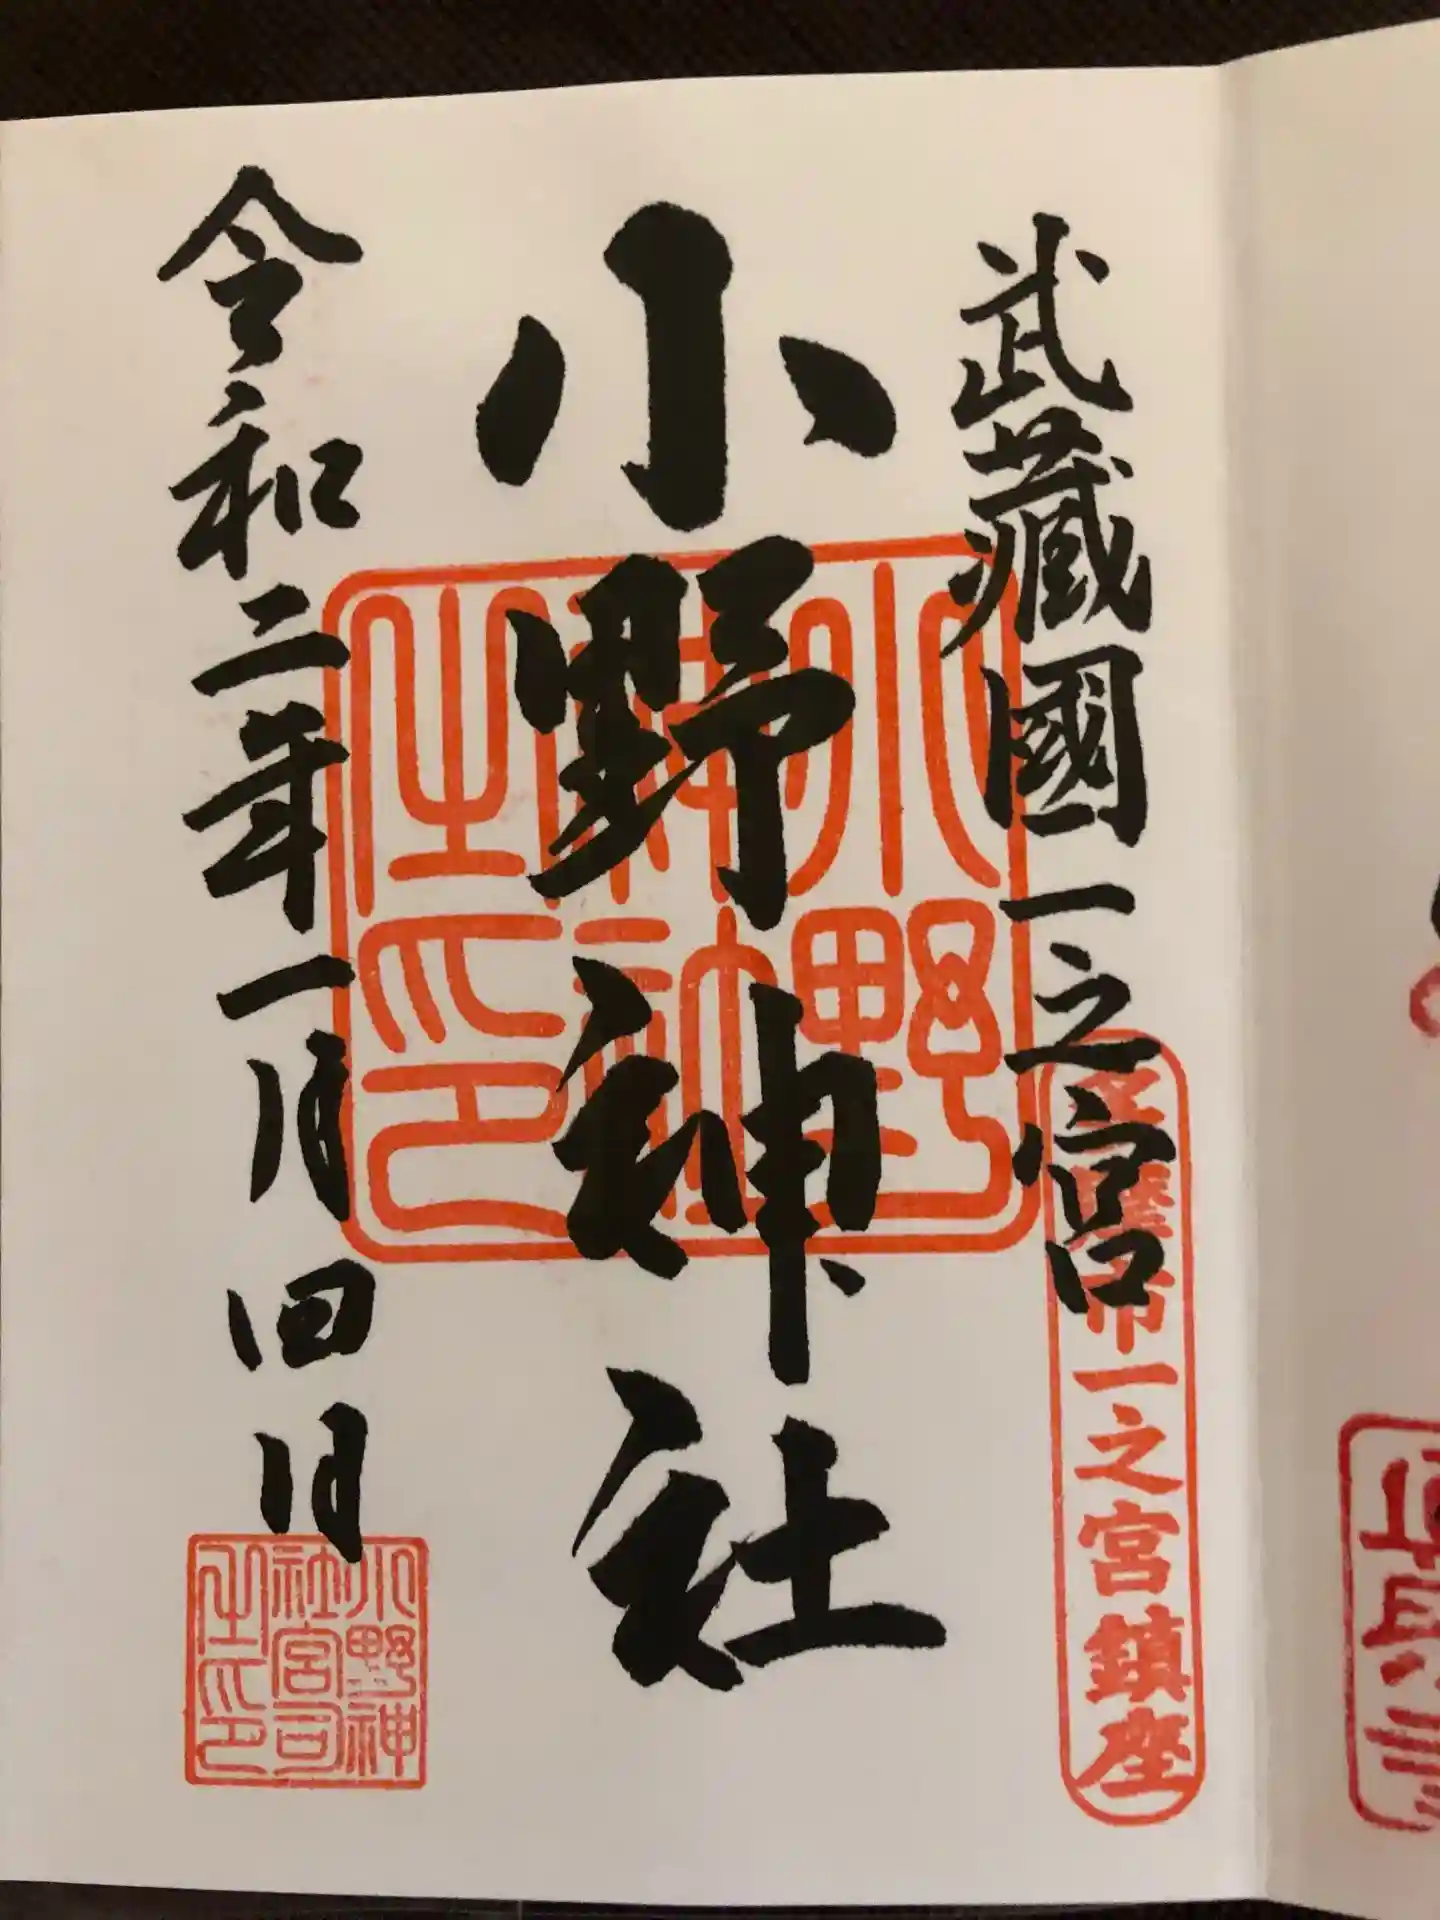 武藏國一之宮
多摩市一之宮鎮座
小野神社
小野神社之印
令和二年一月四日
小野神社宮司之印